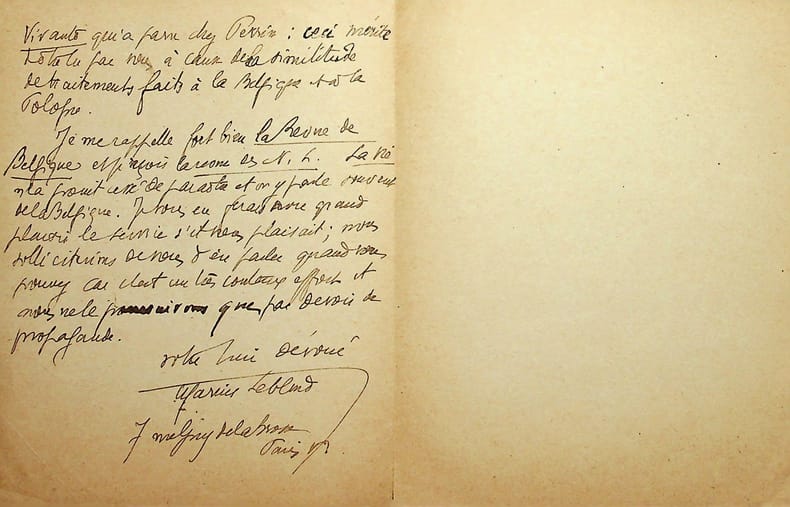 Vivante qui a paru chez Perrin : ceci mérite
d'être lu par vous à cause de la similitude
de traitements faits à la Belgique et à la
Pologne.
Je me rappelle fort bien la Revue de
Belgique et j'ai reçu la rome des N. L. La Vie
n'a point cessé de paraître et on y parle souvent
de la Belgique. Je vous en ferai avec grand
plaisir le service s'il vous plaisait ; nous
solliciterions de vous d'en parler quand vous
pouvez car c'est un très coûteux effort et
nous ne le poursuivons que par devoir de
propagande.
votre bien dévoué
Marius Leblond
7 rue Guy de la Brosse
Paris Ve